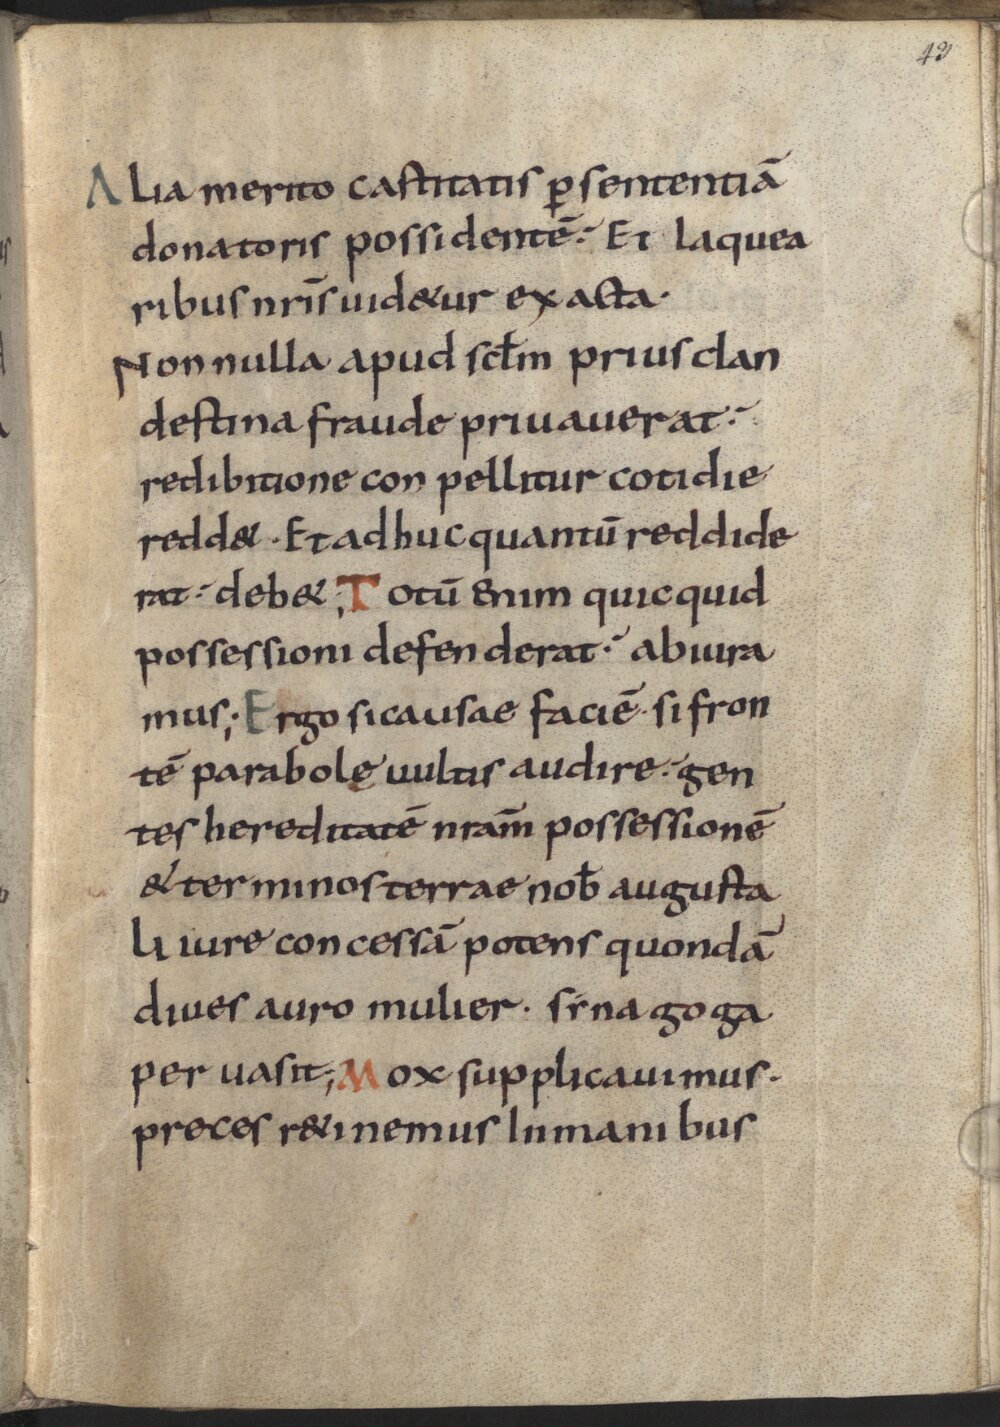 43
Alia merito castitatis ꝑ sententiā
donatoris possidentē· Et laquea
ribus nr̄is uid&ur exacta·
Non nulla apud scl̄m prius clan
destina fraude priuauerat·
redibitione con pellitur cotidie
redd&· Et adhuc quantū reddide
rat· deb&; Totū enim quicquid
possessioni defenderat· abiura
mus; Ergo si causae faciē· si fron
tē parabolę uultis audire· gen
tes hereditatē nram̄ possessionē
& terminos terrae nob̄ augusta
li iure concessā potens quondā
diues auro mulier· synagoga
per uasit; Mox supplicauimus·
preces r&inemus In manibus